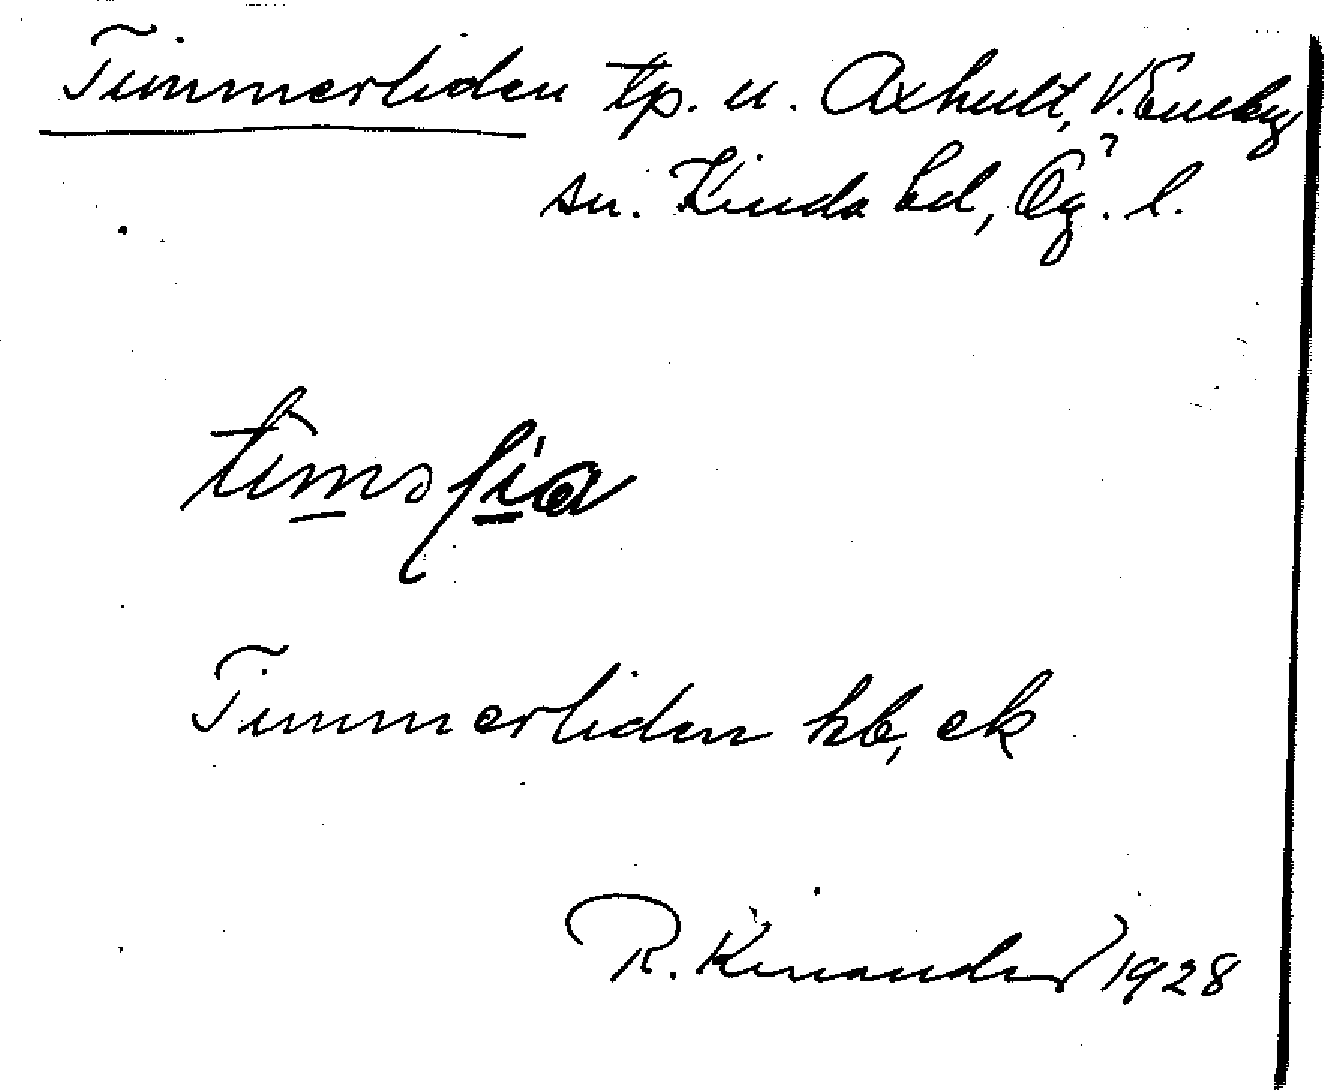 Timmerliden tp. u. Axhult, V. Eneby
sn. Kinda hd, Ög. l.
Timmerliden hb, ek
R. Kinander 1928